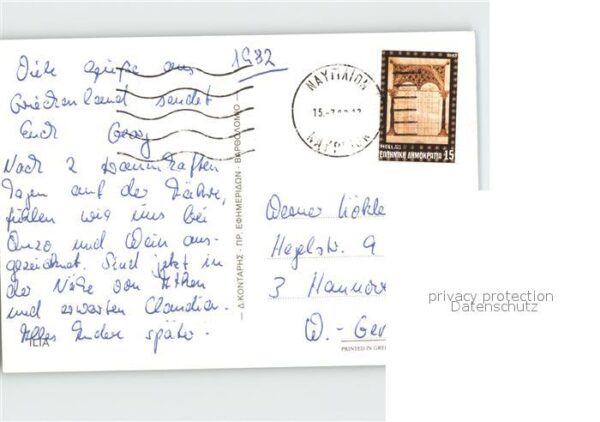 1982
Viele Grüße aus
Griechenland sendet
Euch Georg
Nach 2 Tagen auf der Fähre,
fühlen wir uns bei
Ouzo und Wein aus-
gezeichnet. Sind jetzt in
der Nähe von Athen
und erwarten Claudia.
Alles andere später.
ΙΛΙΑ
Δ.ΚΟΝΤΑΡΗΣ - ΠΡ. ΕΦΗΜΕΡΙΔΩΝ - ΒΑΡΘΟΛΟΜΙΟ
ΝΑΥΠΛΙΟΝ
15.
HELLAS
ΕΛΛΗΝΙΚΗ ΔΗΜΟΚΡΑΤΙΑ 15
Werner
Hegelstr. 9
3 Hannove
W.-Ge
PRINTED IN GRE
privacy protection
Datenschutz